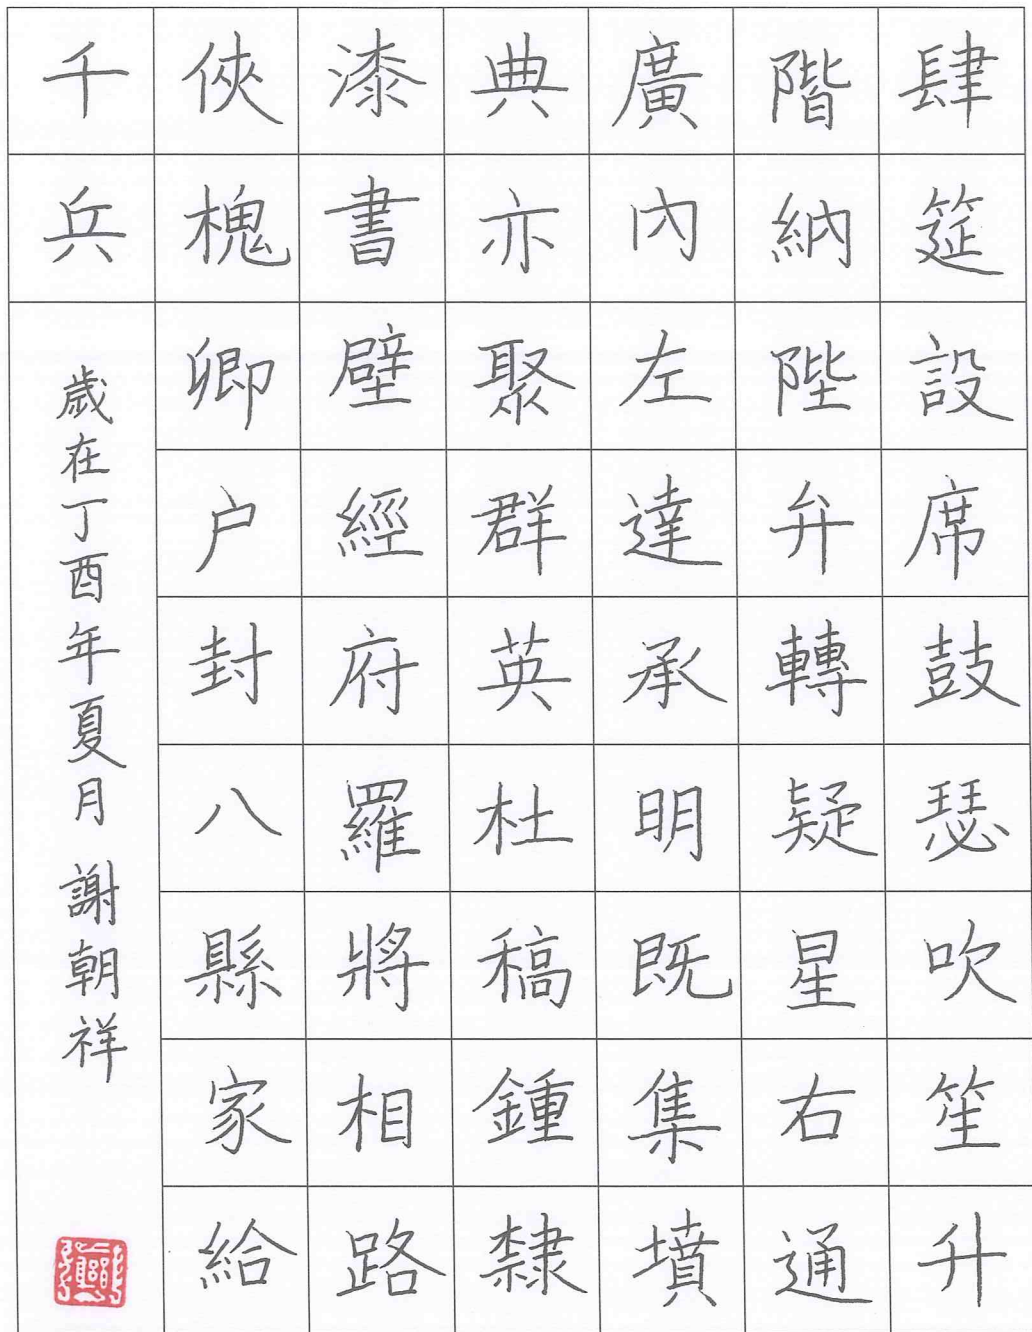 肆筵設席鼓瑟吹笙升
階納陛弁轉疑星右通
廣內左達承明既集墳
典亦聚群英杜稿鍾隸
漆書壁經府羅將相路
俠槐卿户封八縣家給
千兵
歲在丁酉年夏月 謝朝祥